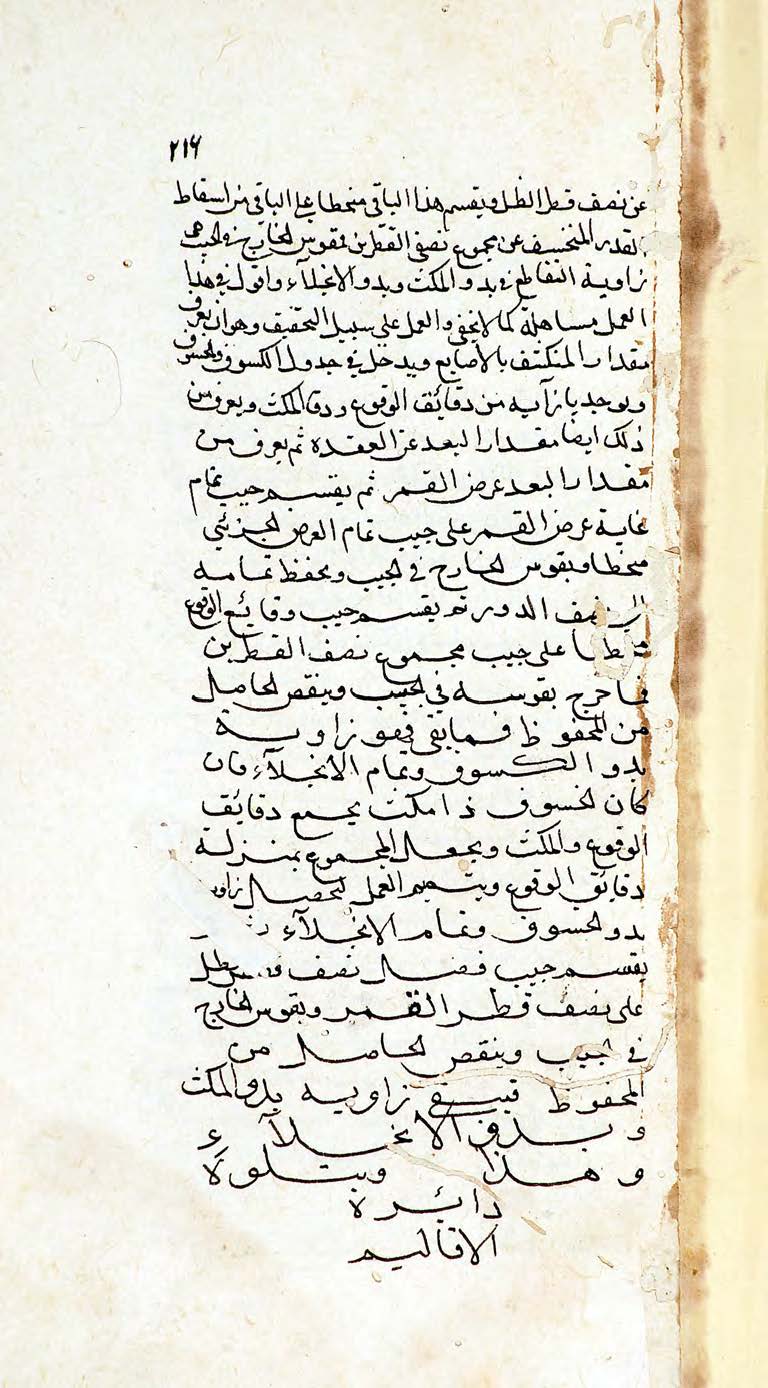 ٢١٦
عن نصف قطر الظل ويقسم هذا الباقي منحطا على الباقي من اسقاط
القدر المنخسف عن مجموع نصفي القطرين فقوس الخارج في الجيب هي
زاوية التقاطع في بدو المكث وبدو الانجلآء واقول في هذا
العمل مساهلة كما لا يخفى والعمل على سبيل التحقيق وهو ان يعرف
مقدار المنكسف بالاصابع ويدخل في جدول الكسوف والخسوف
ويوجد بازآيه من دقائق الوقوع ودقا المكث ويعرف من
ذلك ايضا مقدار البعد عن العقدة ثم يعرف من
مقدار البعد عرض القمر ثم يقسم جيب تمام
غاية عرض القمر على جيب تمام العرض الجزئي
منحطا ويقوس الخارج في الجيب ويحفظ تمامه
الى نصف الدور ثم يقسم جيب دقائق الوقوع
منحطا على جيب مجموع نصف القطرين
فما خرج يقوسه في الجيب وينقص الحاصل
من المحفوظ فما بقي فهو زاوية
بدو الكسوف وتمام الانجلآء فان
كان الخسوف ذا مكث يجمع دقايق
الوقوع والمكث ويجعل المجموع بمنزلة
دقايق الوقوع ويتمم العمل لتحصيل زاوية
بدو الخسوف وتمام الانجلآء
يقسم جيب فصل نصف قطر الظل
على نصف قطر القمر ويقوس الخارج
في الجيب وينقص الحاصل من
المحفوظ فيبقى زاوية بدو المكث
وبدو الانجلآء
وهذا ويتلوه
دائرة
الاقاليم